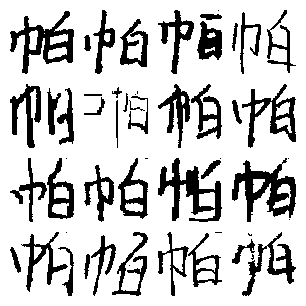 帕帕帕帕
帕帕帕
帕帕帕帕
帕帕帕帕